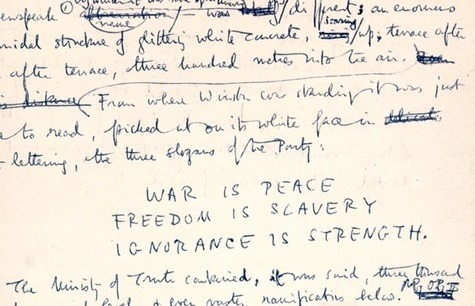 Newspeak was different: an enormous
pyramidal structure of glittering white concrete, soaring up, terrace after
after terrace, three hundred metres into the air.
From where Winston was standing it was just
to read, picked out on its white face in
lettering, the three slogans of the Party:
WAR IS PEACE
FREEDOM IS SLAVERY
IGNORANCE IS STRENGTH.
The Ministry of Truth contained, it was said, three thousand
ramifications below.